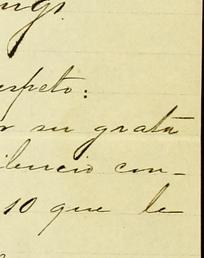 speto:
su grata
ilencio con-
10 que le